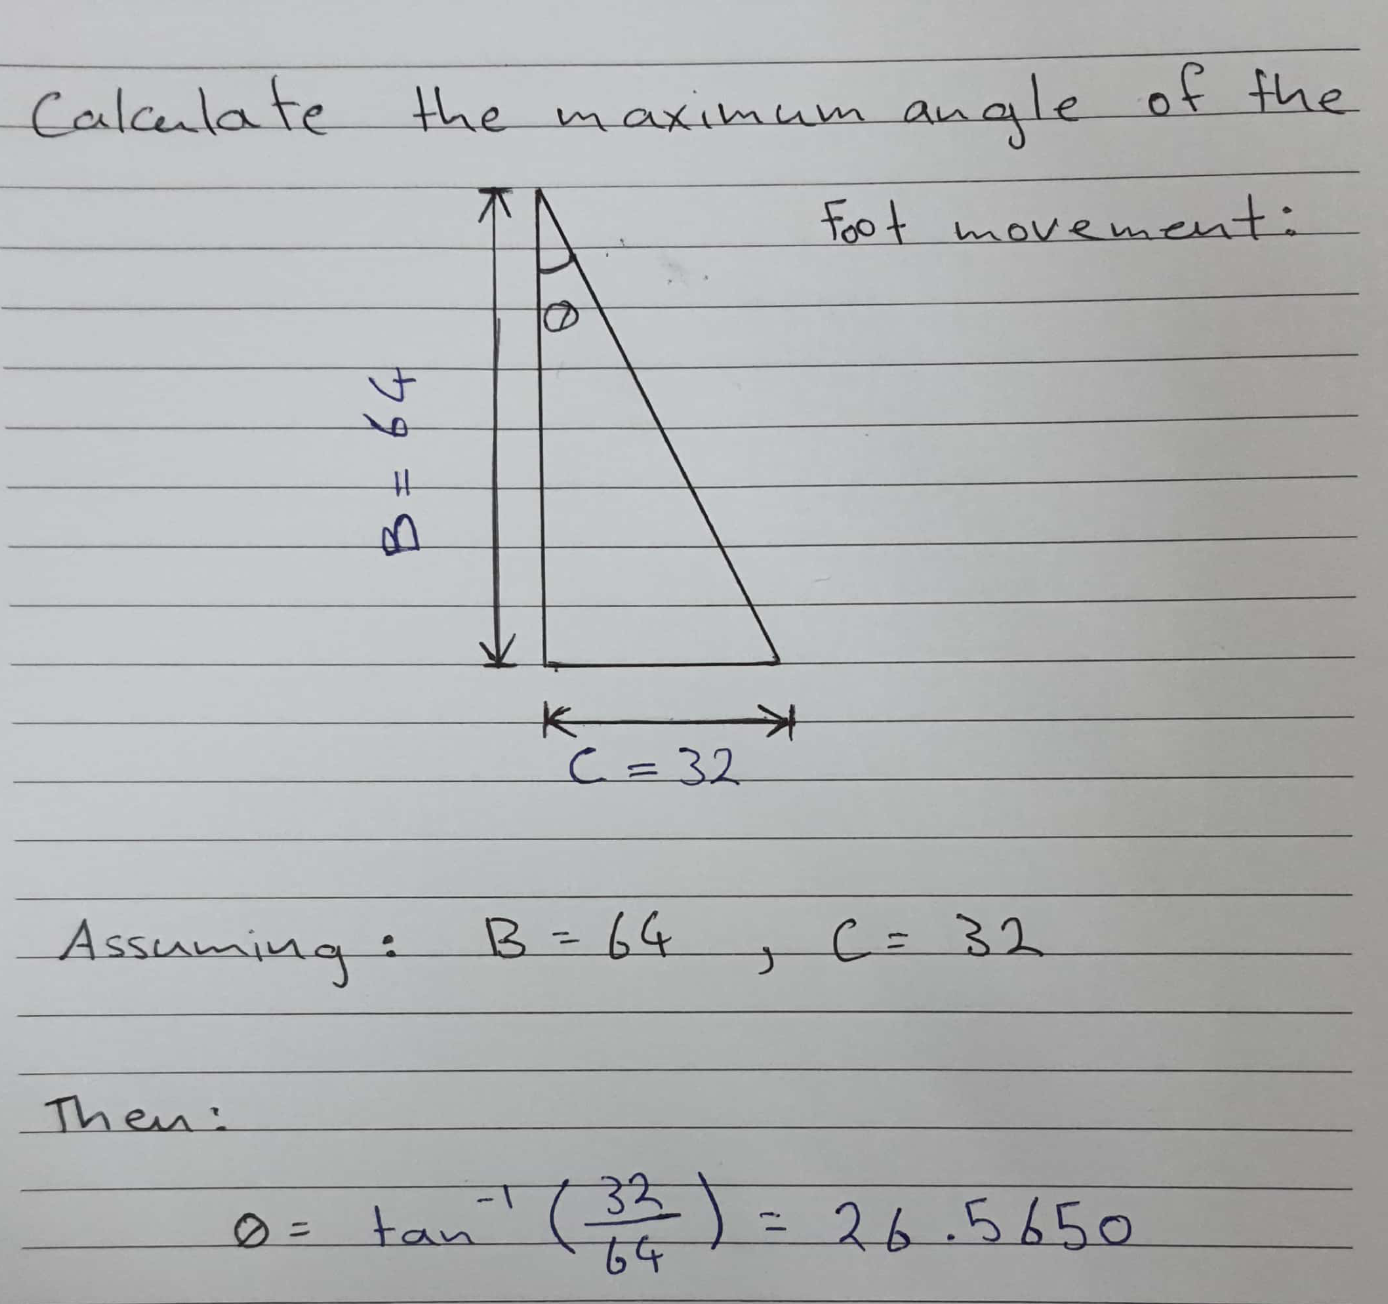 Calculate the maximum angle of the
Foot movement:
θ
B = 64
C = 32
Assuming: B = 64 , C = 32
Then:
θ = tan⁻¹ (32/64) = 26.5650